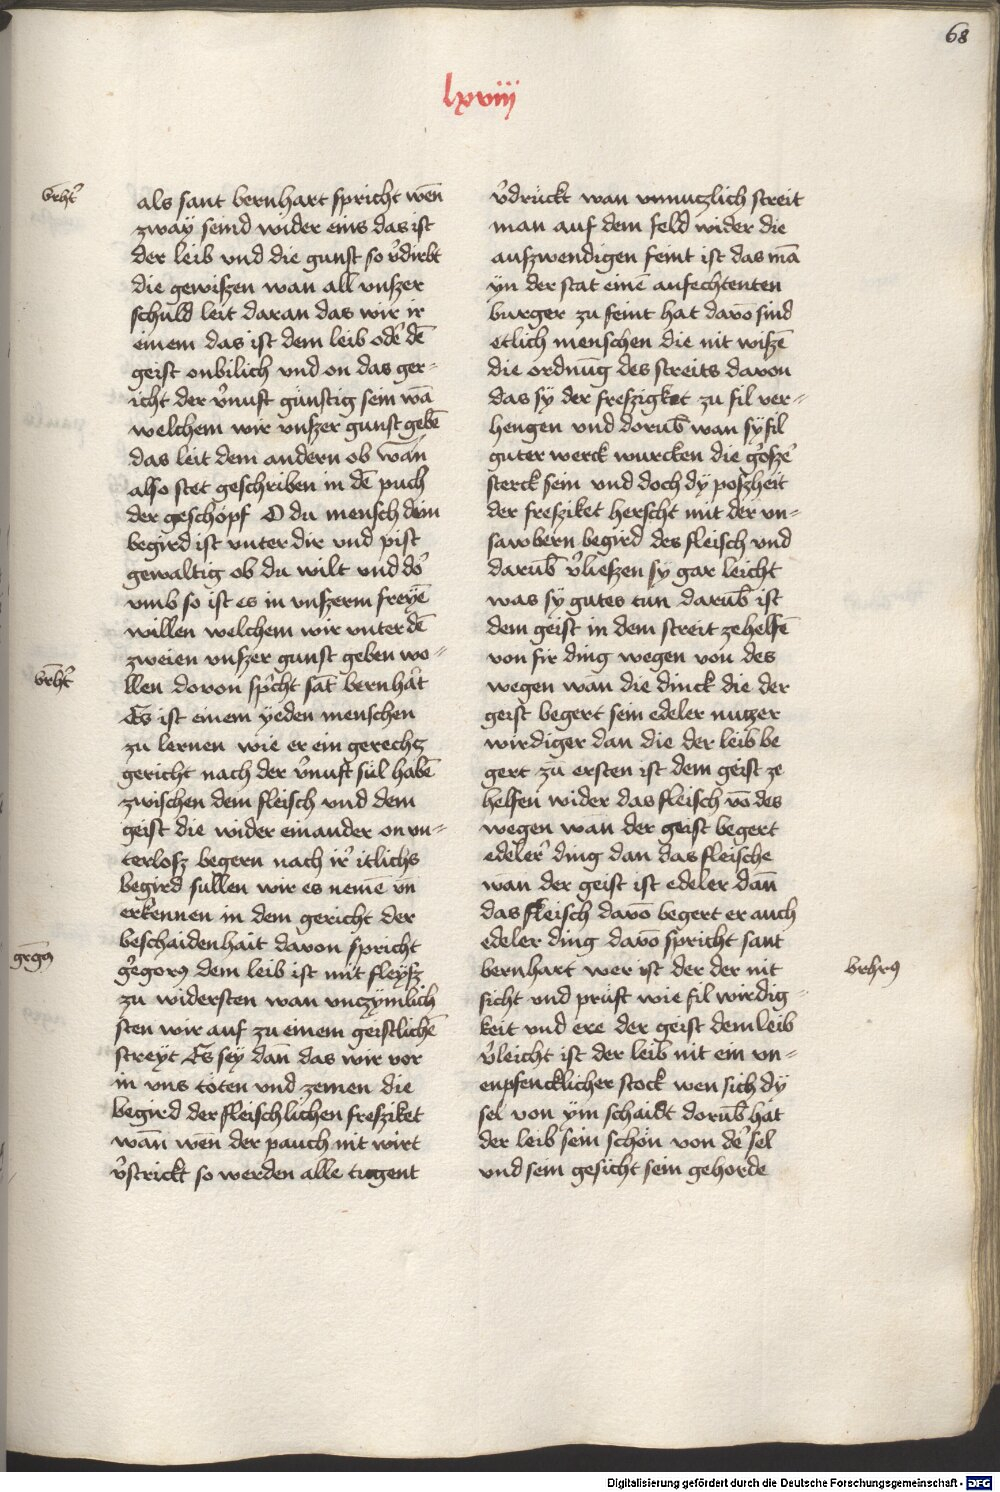 68
lxviii
brhr̄t
als sant bernhart spricht wen̄
zway seind wider eins das ist
der leib vnd die gunst so v̓dirbt
die gewiszen wan all vnszer
schuld leit daran das wir ir
einem das ist dem leib oder̓ dē
geist onbilich vnd on das ger-
icht der v̓nuft günstig sein wā
welchem wir vnszer gunst gebē
das leit dem andern ob wan̄
also stet geschriben in dē puch
der geschöpf O du mensch dein
begird ist vnter dir vnd pist
gewaltig ob du wilt vnd do̓
vmb so ist es in vnszerm freyē
willen welchem wir vnter dē
zweien vnszer gunst geben wo-
brhr̄t
llen doron sp̓cht sāt bernha̓t
Es ist einem yeden menschen
zu lernen wie er ein gerechcz
gericht nach der v̓nuft sül habē
zwischen dem fleisch vnd dem
geist die wider einander on vn-
terlosz begern nach ir̓ itlichs
begird sullen wir es nemē vn̄
erkennen in dem gericht der
beschaidenhait davon spricht
gregꝰ
g̓egorꝰ dem leib ist mit fleysz
zu widersten wan vnczymlich
sten wir auf zu einem geistlichē
streyt Es sey dan̄ das wir vor
in vns töten vnd zemen die
begird der fleischlichen fresziket
wan̄ wen̄ der pauch nit wirt
v̓strickt so werden alle tugent
v̓drückt wan vnnuczlich streit
man auf dem feld wider die
auszwendigen feint ist das mā
yn der stat einē anfechtenten
burger zu feint hat davō sind
etlich menschen die nit wiszē
die ordnūg des streits davon
das sy der freszigket zu fil ver-
hengen vnd dorūb wan sy fil
guter werck wurcken die g̓osze̓
sterck sein vnd doch dy poszheit
der fresziket herscht mit der vn-
sawbern begird des fleisch vnd
darūb v̓lieszen sy gar leicht
was sy gutes tün darūb ist
dem geist in dem streit ze helfē
von fir ding wegen von des
wegen wan̄ die dinck die der
geist begert sein edeler nuczer
wirdiger dan die der leib be
gert zu ersten ist dem geist ze
helfen wider das fleisch vō des
wegen wan̄ der geist begert
edeler̓ ding dan das fleische
wan der geist ist edeler dan̄
das fleisch davō begert er auch
edeler ding davō spricht sant
bernhart wer ist der der nit
brhrꝰ
sicht vnd prüft wie fil wirdig-
keit vnd ere der geist dem leib
v̓leicht ist der leib nit ein vn-
enpfencklicher stock wen sich dy
sel von ym schaidt dorūb hat
der leib sein schön von de̓ sel
vnd sein gesicht sein gehorde
Digitalisierung gefördert durch die Deutsche Forschungsgemeinschaft - DFG